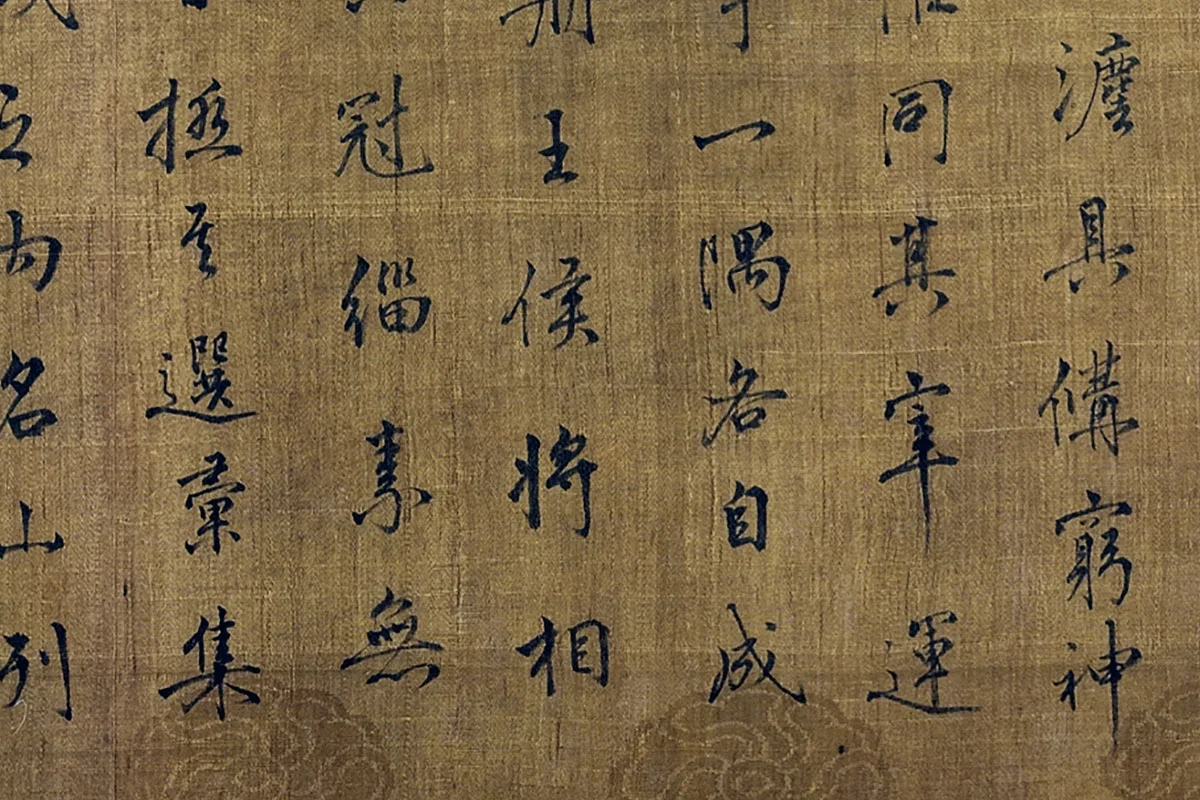 瀍具備窮神
同其宰運
一隅各自成
王侯將相
冠緇素無
極其選彙集
內名山列